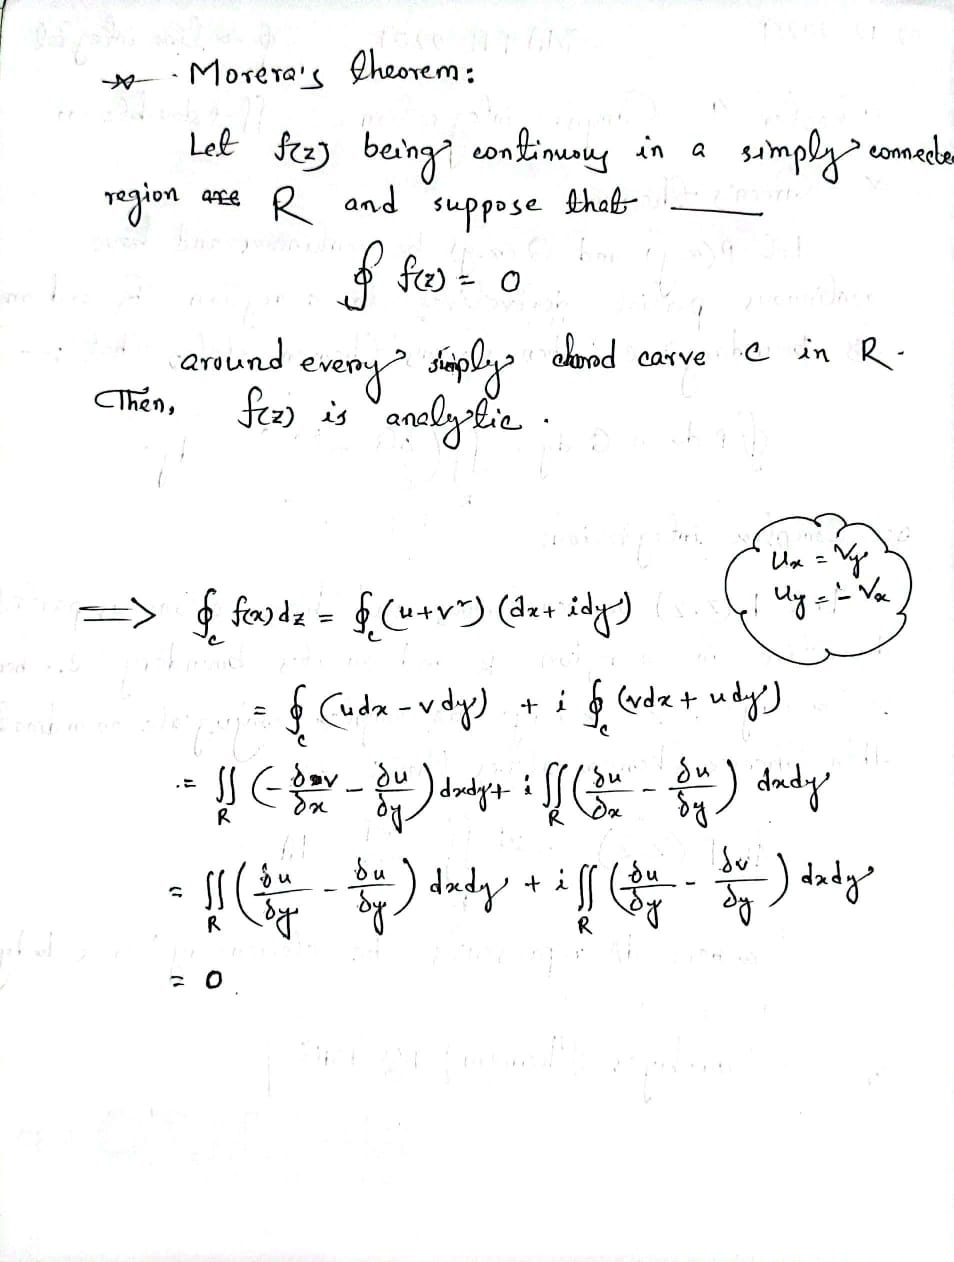 Morera's theorem:
Let f(z) being continuous in a simply connecte
region R and suppose that ———
∮ f(z) = 0
around every simply closed carve C in R.
Then, f(z) is analytic.
u_x = v_y
u_y = - v_x
=> ∮_c f(x) dz = ∮_c (u+v²) (dx+idy)
= ∮_c (udx - vdy) + i ∮_c (vdx + udy)
= ∬_R (- δv/δx - δu/δy) dxdy + i ∬_R (δu/δx - δu/δy) dxdy
= ∬_R (δu/δy - δu/δy) dxdy + i ∬_R (δu/δy - δv/δy) dxdy
= 0